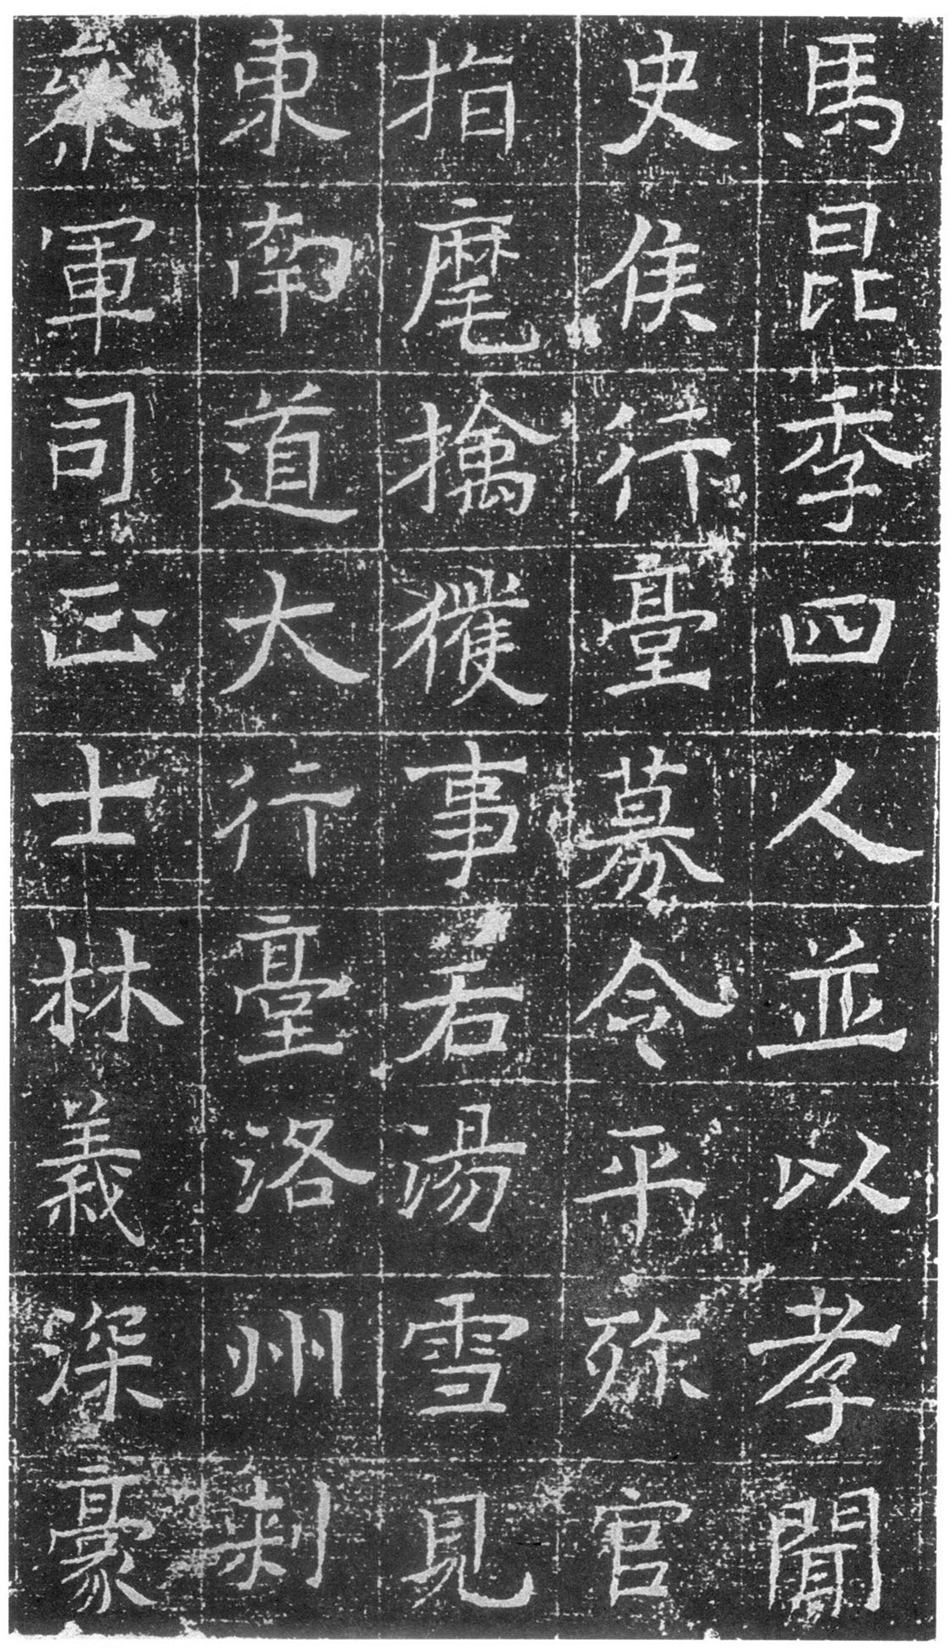 馬昆季四人並以孝聞
史侯行臺募令平弥官
指麾擒獲事若湯雪見
東南道大行臺洛州刺
軍司正士林義深豪